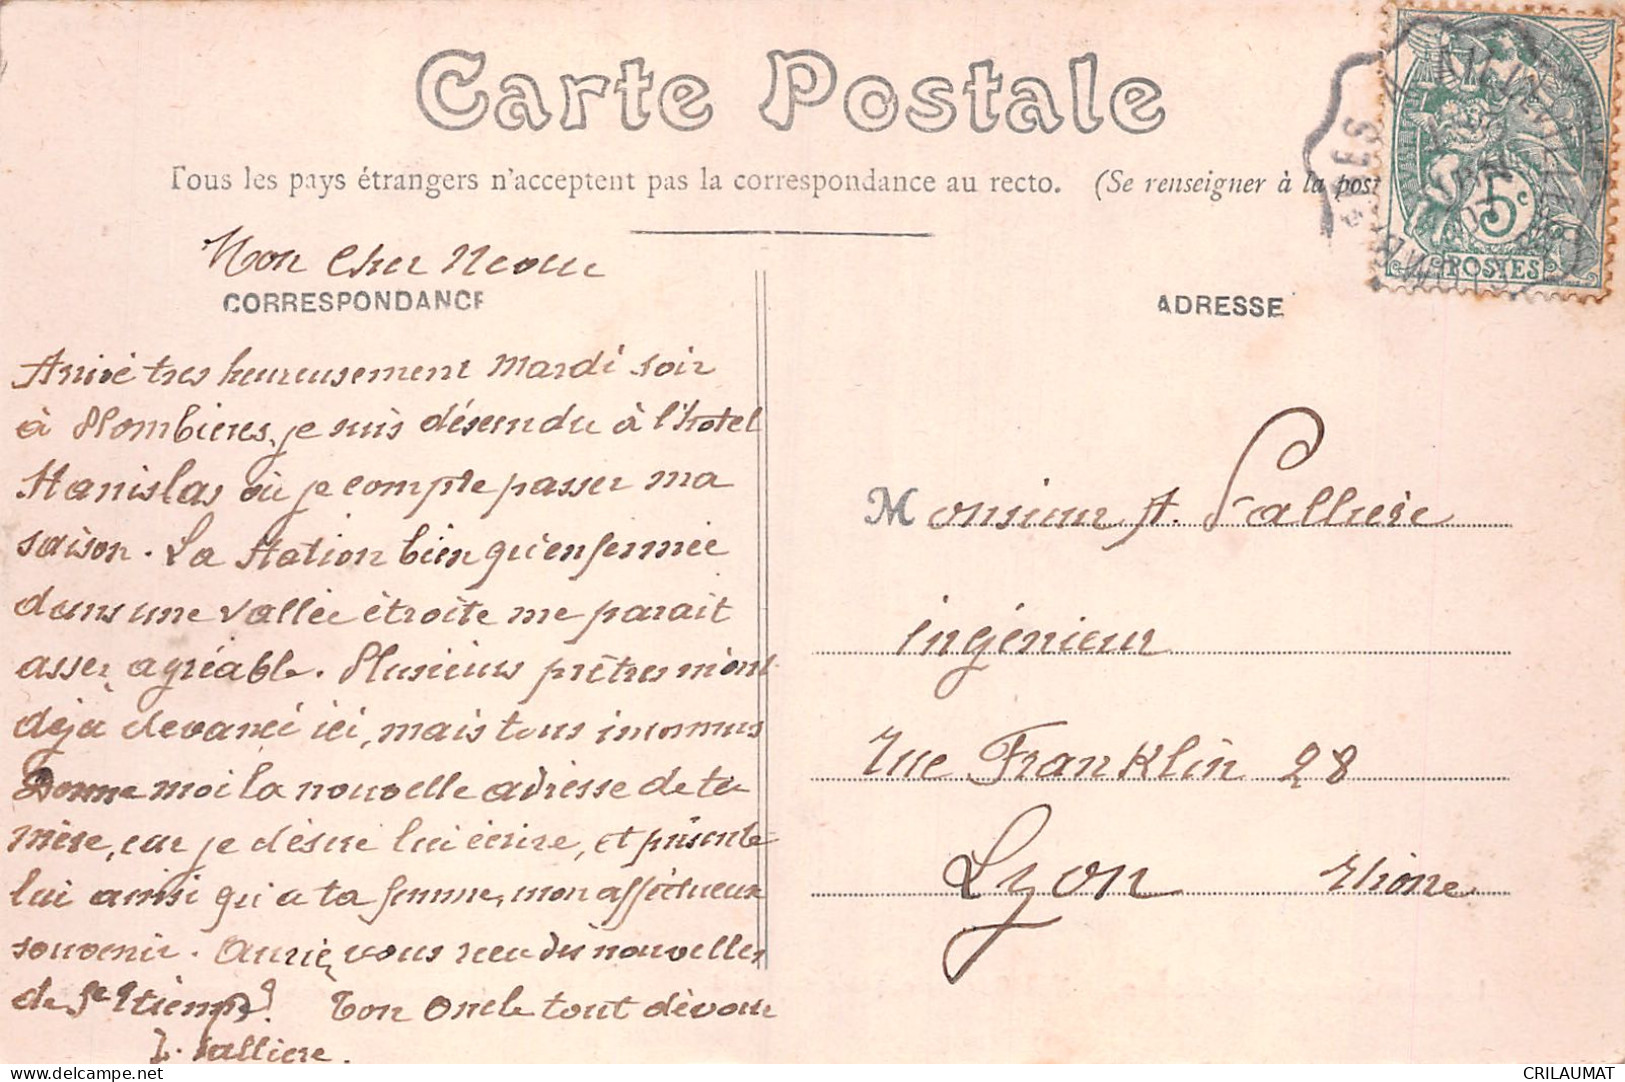 Carte Postale
Tous les pays étrangers n'acceptent pas la correspondance au recto. (Se renseigner à la post
5c
POSTES
Mon Cher Neveu
CORRESPONDANCE
ADRESSE
Arrivé tres heureusement Mardi soir
à Plombieres, je suis désendu à l'hotel
Stanislas où je compte passer ma
saison. La Station bien qu'enfermée
dans une vallée étroite me parait
asser agréable. Plusieurs prêtres m'ont
déjà devancé ici, mais tous inconnus
Donne moi la nouvelle adresse de ta
mère, car je désire lui écrire, et présente
lui ainsi qu'a ta femme, mon affectueux
souvenir. Auriez vous reçu des nouvelles
de St Etienne?
Ton Oncle tout dévoué
Monsieur A. Falliere
ingénieur
rue Franklin 28
Lyon Rhone
CRILAUMAT